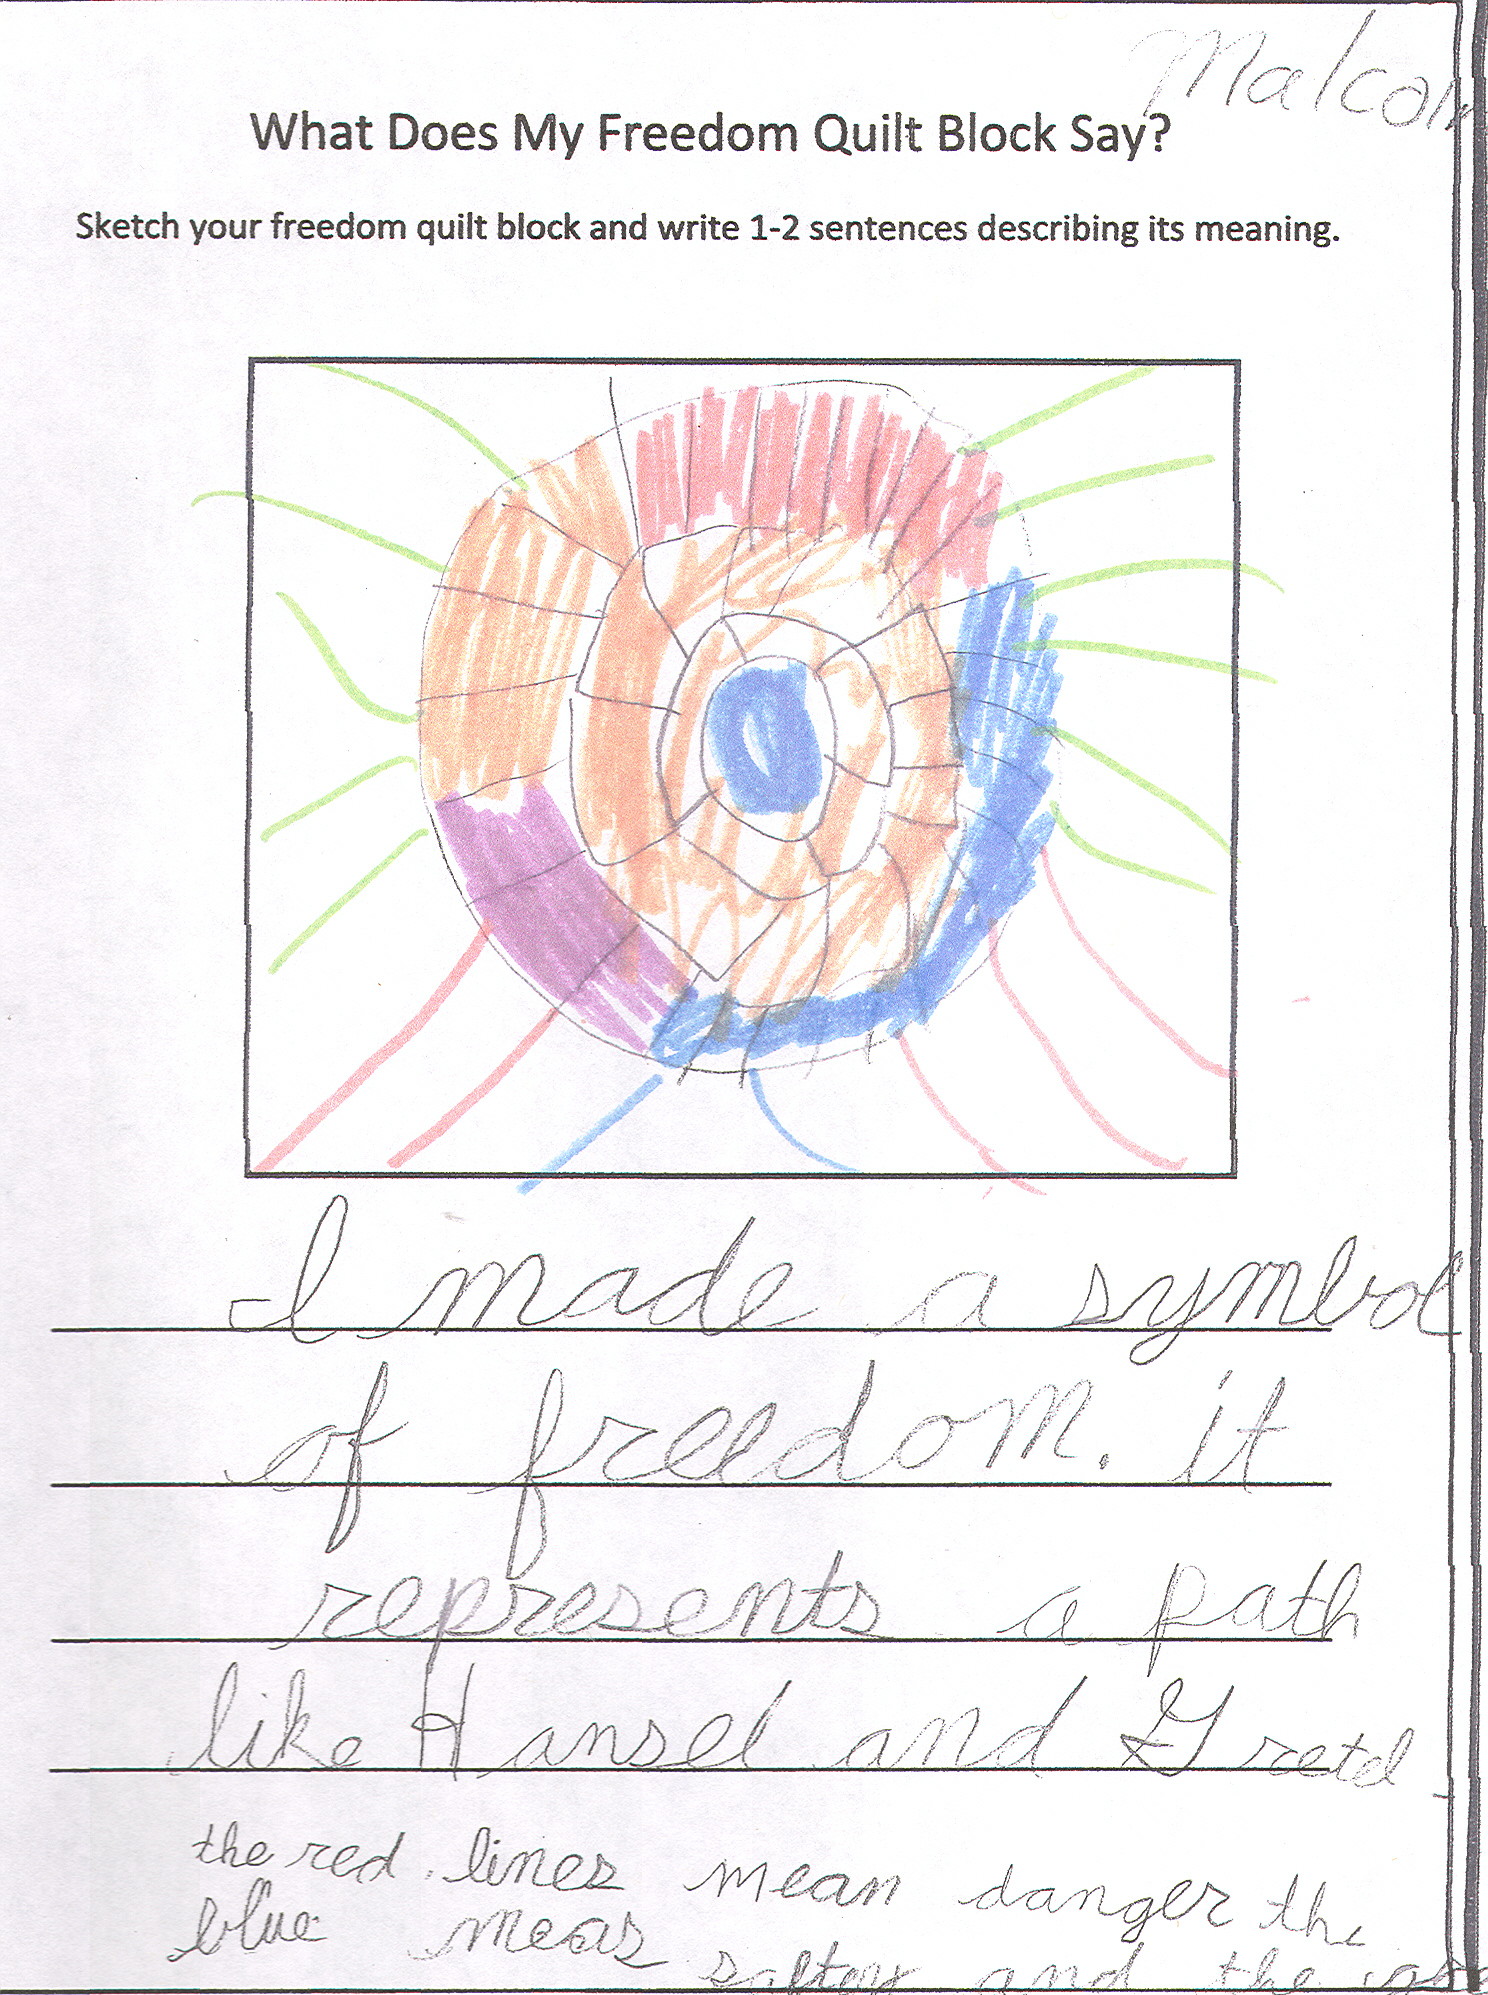 Malcolm
What Does My Freedom Quilt Block Say?
Sketch your freedom quilt block and write 1-2 sentences describing its meaning.
I made a symbol
of freedom. it
represents a path
like Hansel and Gretel
the red lines mean danger the
blue meas saftey and the